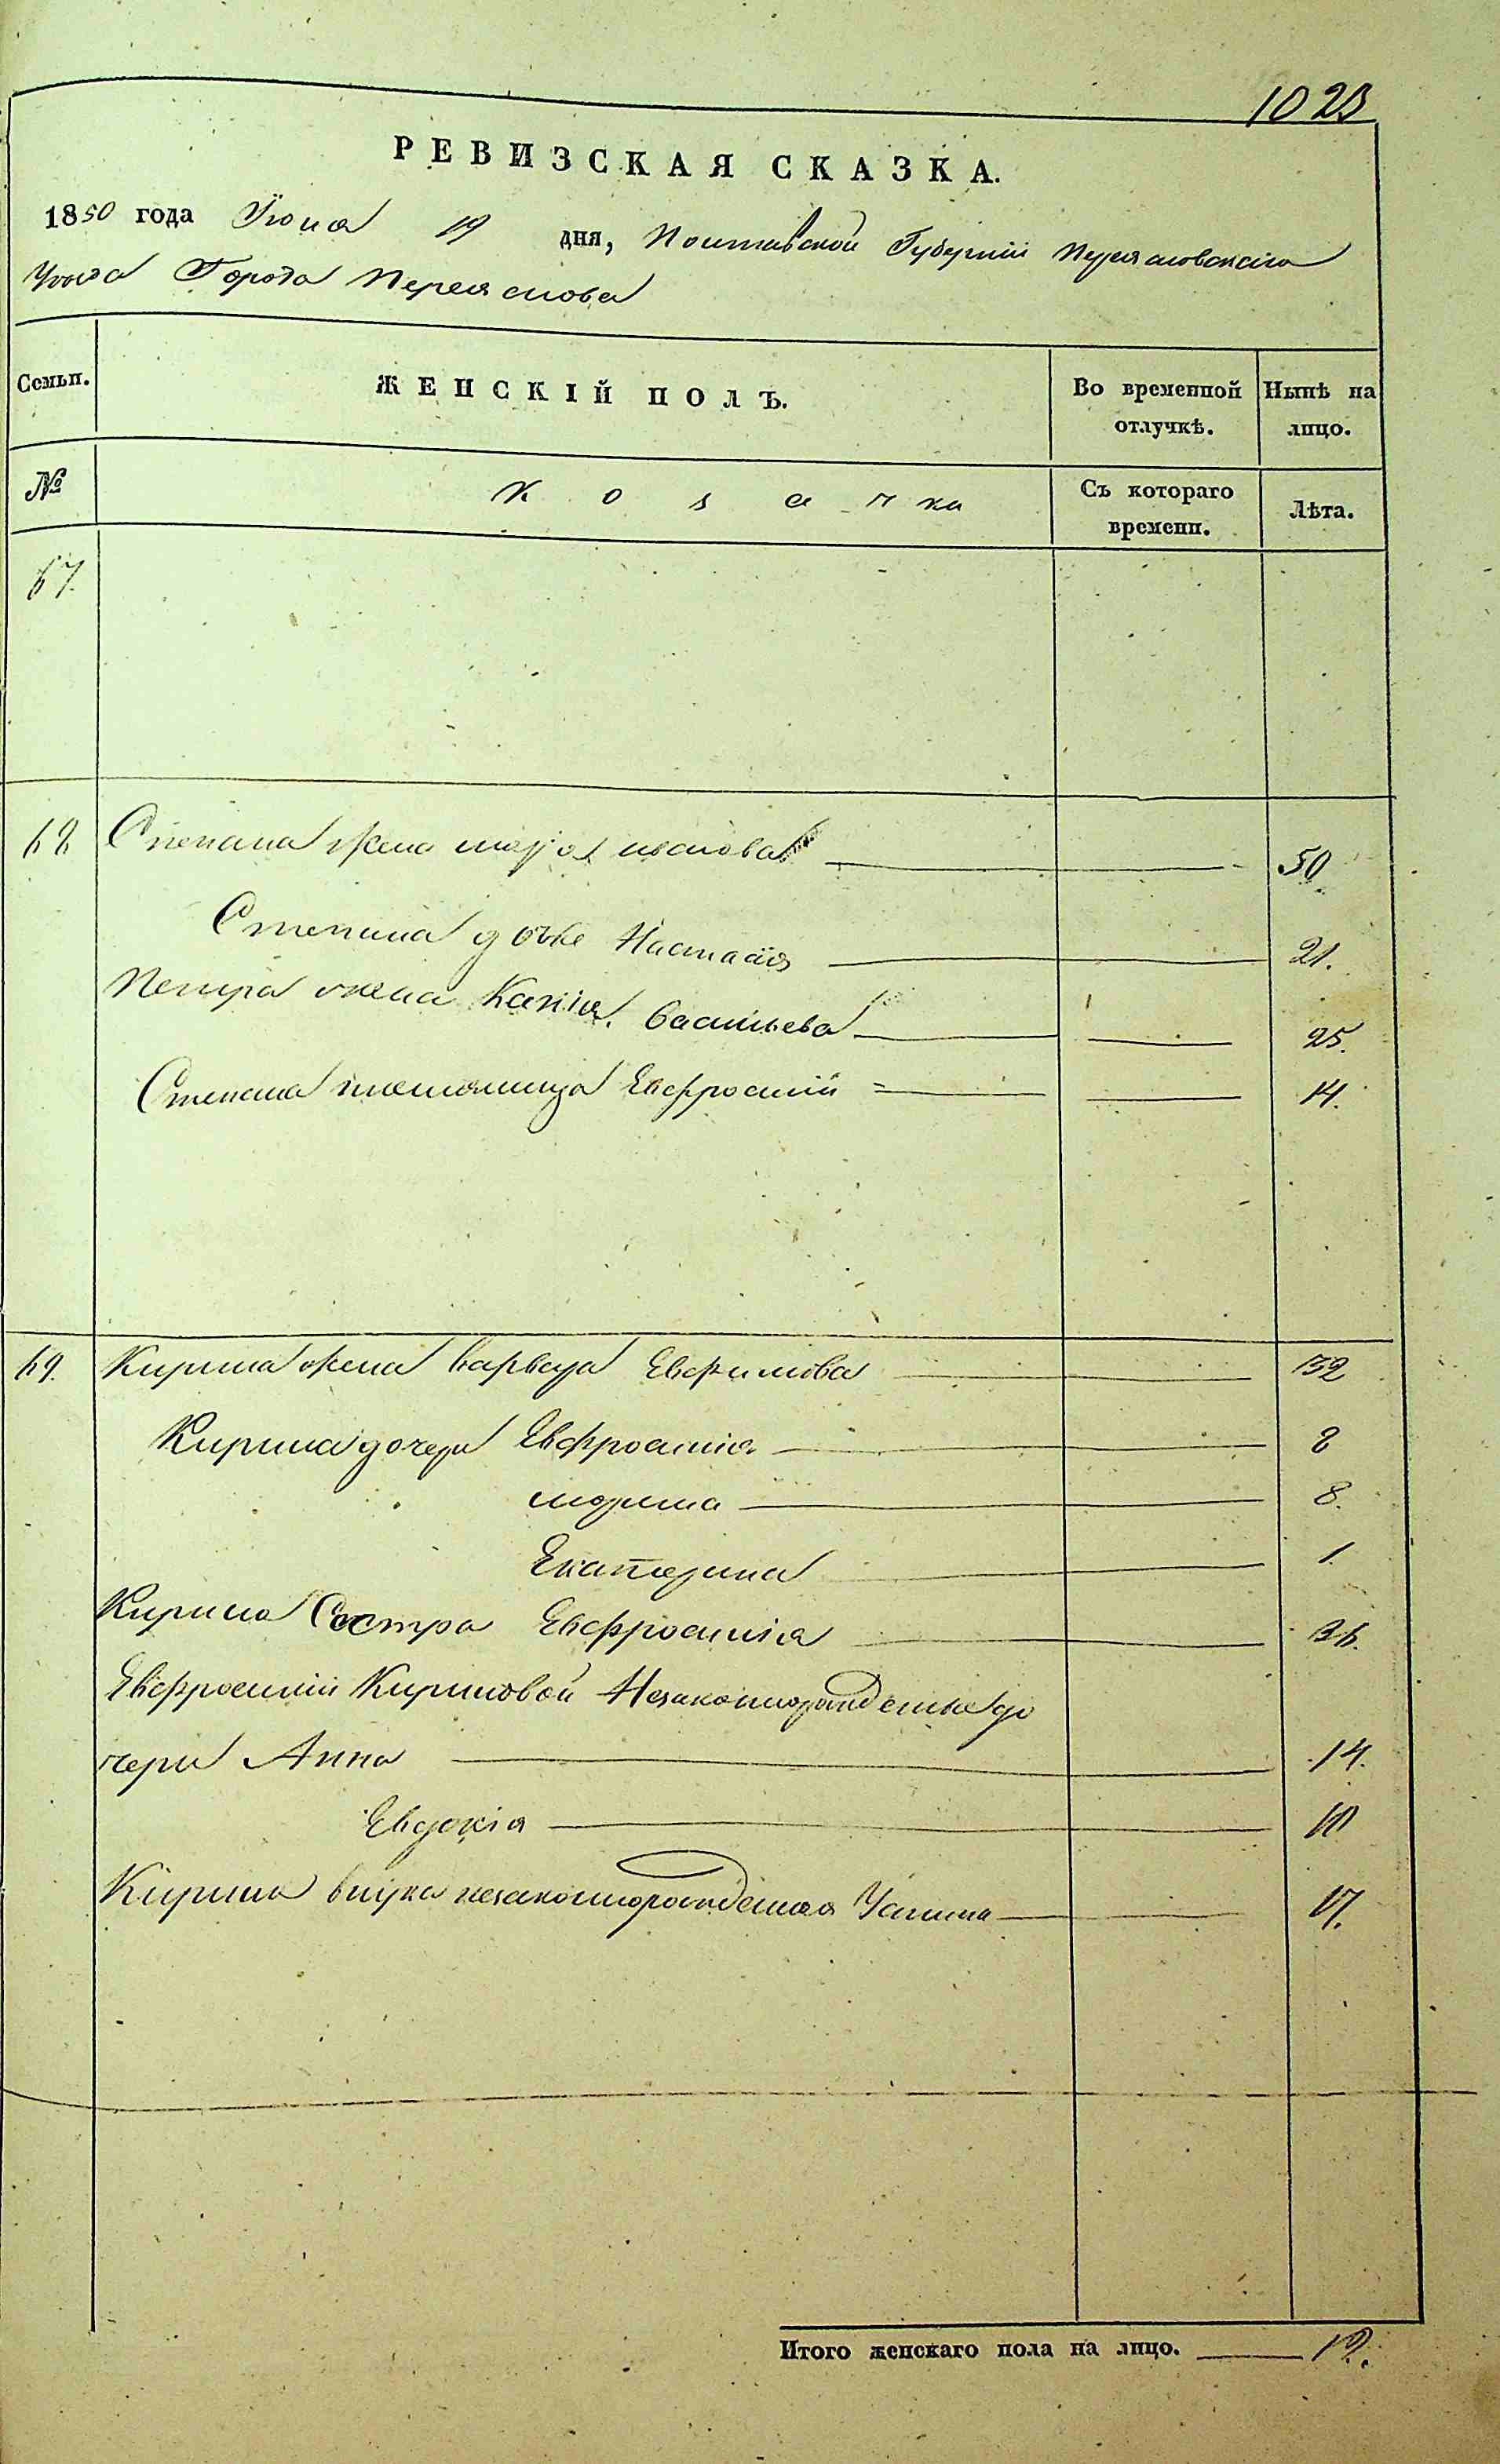 1023
РЕВИЗСКАЯ СКАЗКА.
1850 года Іюня 19 дня, Полтавской Губерніи Переяславскаго
Уезда Города Переяслова
Семьи. ЖЕНСКІЙ ПОЛЪ. Во временной отлучкѣ. Нынѣ на лицо.
№ Козачка Съ котораго времени. Лѣта.
67.
68 Степана жена 50
Степана дочка Настасія 21.
Петра жена Васильева 25.
Степана племяница Евфросинія 14.
69. Кирила жена Варвара Евфимова 32
Кирила дочери Евфросинія 8
Марина 8.
Екатерина 1.
Кирила Сестра Евфросинія 36.
Евфросиніи Кириловой Незаконорожденные до
чери Анна 14.
Евдокія 10
Кирила внука незаконорожденная Устина 17.
Итого женскаго пола на лицо. 12.